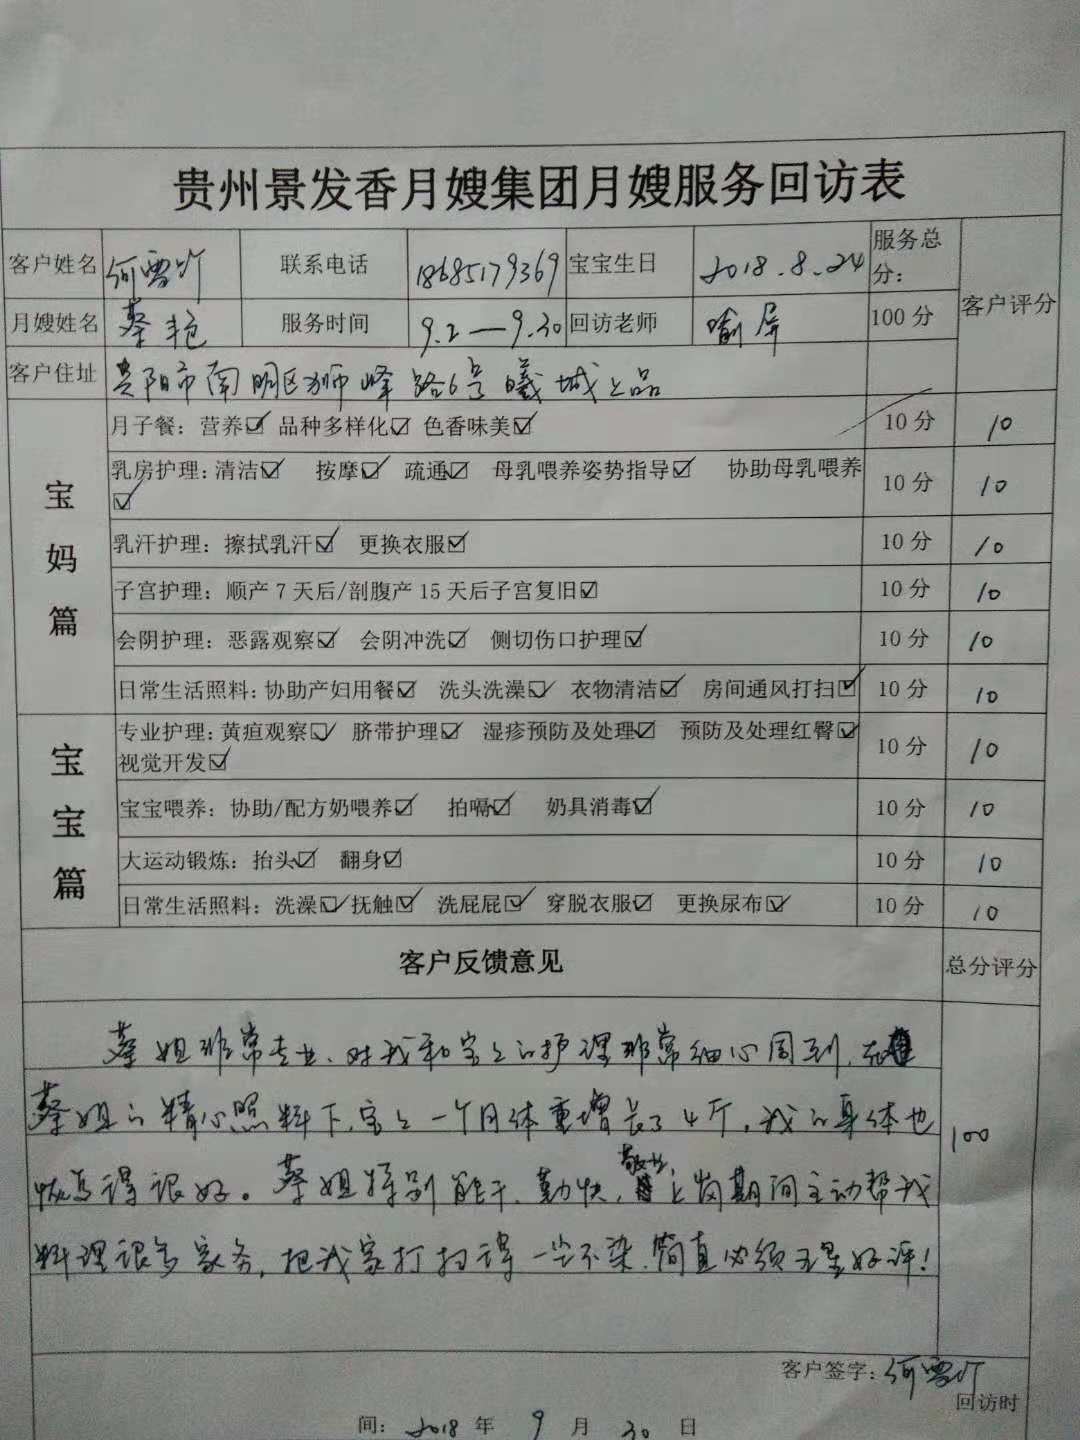 贵州景发香月嫂集团月嫂服务回访表
客户姓名 何雪 联系电话 18685179369 宝宝生日 2018.8.24 服务总分： 客户评分
月嫂姓名 蔡艳 服务时间 9.2—9.30 回访老师 喻屏 100分
客户住址 贵阳市南明区狮峰路6号曦城上品
宝妈篇
月子餐：营养☑ 品种多样化☑ 色香味美☑ 10分 10
乳房护理：清洁☑ 按摩☑ 疏通☑ 母乳喂养姿势指导☑ 协助母乳喂养
☑ 10分 10
乳汗护理：擦拭乳汗☑ 更换衣服☑ 10分 10
子宫护理：顺产7天后/剖腹产15天后子宫复旧☑ 10分 10
会阴护理：恶露观察☑ 会阴冲洗☑ 侧切伤口护理☑ 10分 10
日常生活照料：协助产妇用餐☑ 洗头洗澡☑ 衣物清洁☑ 房间通风打扫☑ 10分 10
宝宝篇
专业护理：黄疸观察☑ 脐带护理☑ 湿疹预防及处理☑ 预防及处理红臀☑
视觉开发☑ 10分 10
宝宝喂养：协助/配方奶喂养☑ 拍嗝☑ 奶具消毒☑ 10分 10
大运动锻炼：抬头☑ 翻身☑ 10分 10
日常生活照料：洗澡☑抚触☑ 洗屁屁☑ 穿脱衣服☑ 更换尿布☑ 10分 10
客户反馈意见 总分评分
蔡姐非常专业、对我和宝宝的护理非常细心周到，在
蔡姐的精心照料下，宝宝一个月体重增长了4斤，我的身体也
恢复得很好。蔡姐特别能干、勤快，上岗期间主动帮我
料理很多家务，把我家打扫得一尘不染，简直必须五星好评！
100
客户签字：何雪
回访时
间：2018年9月30日